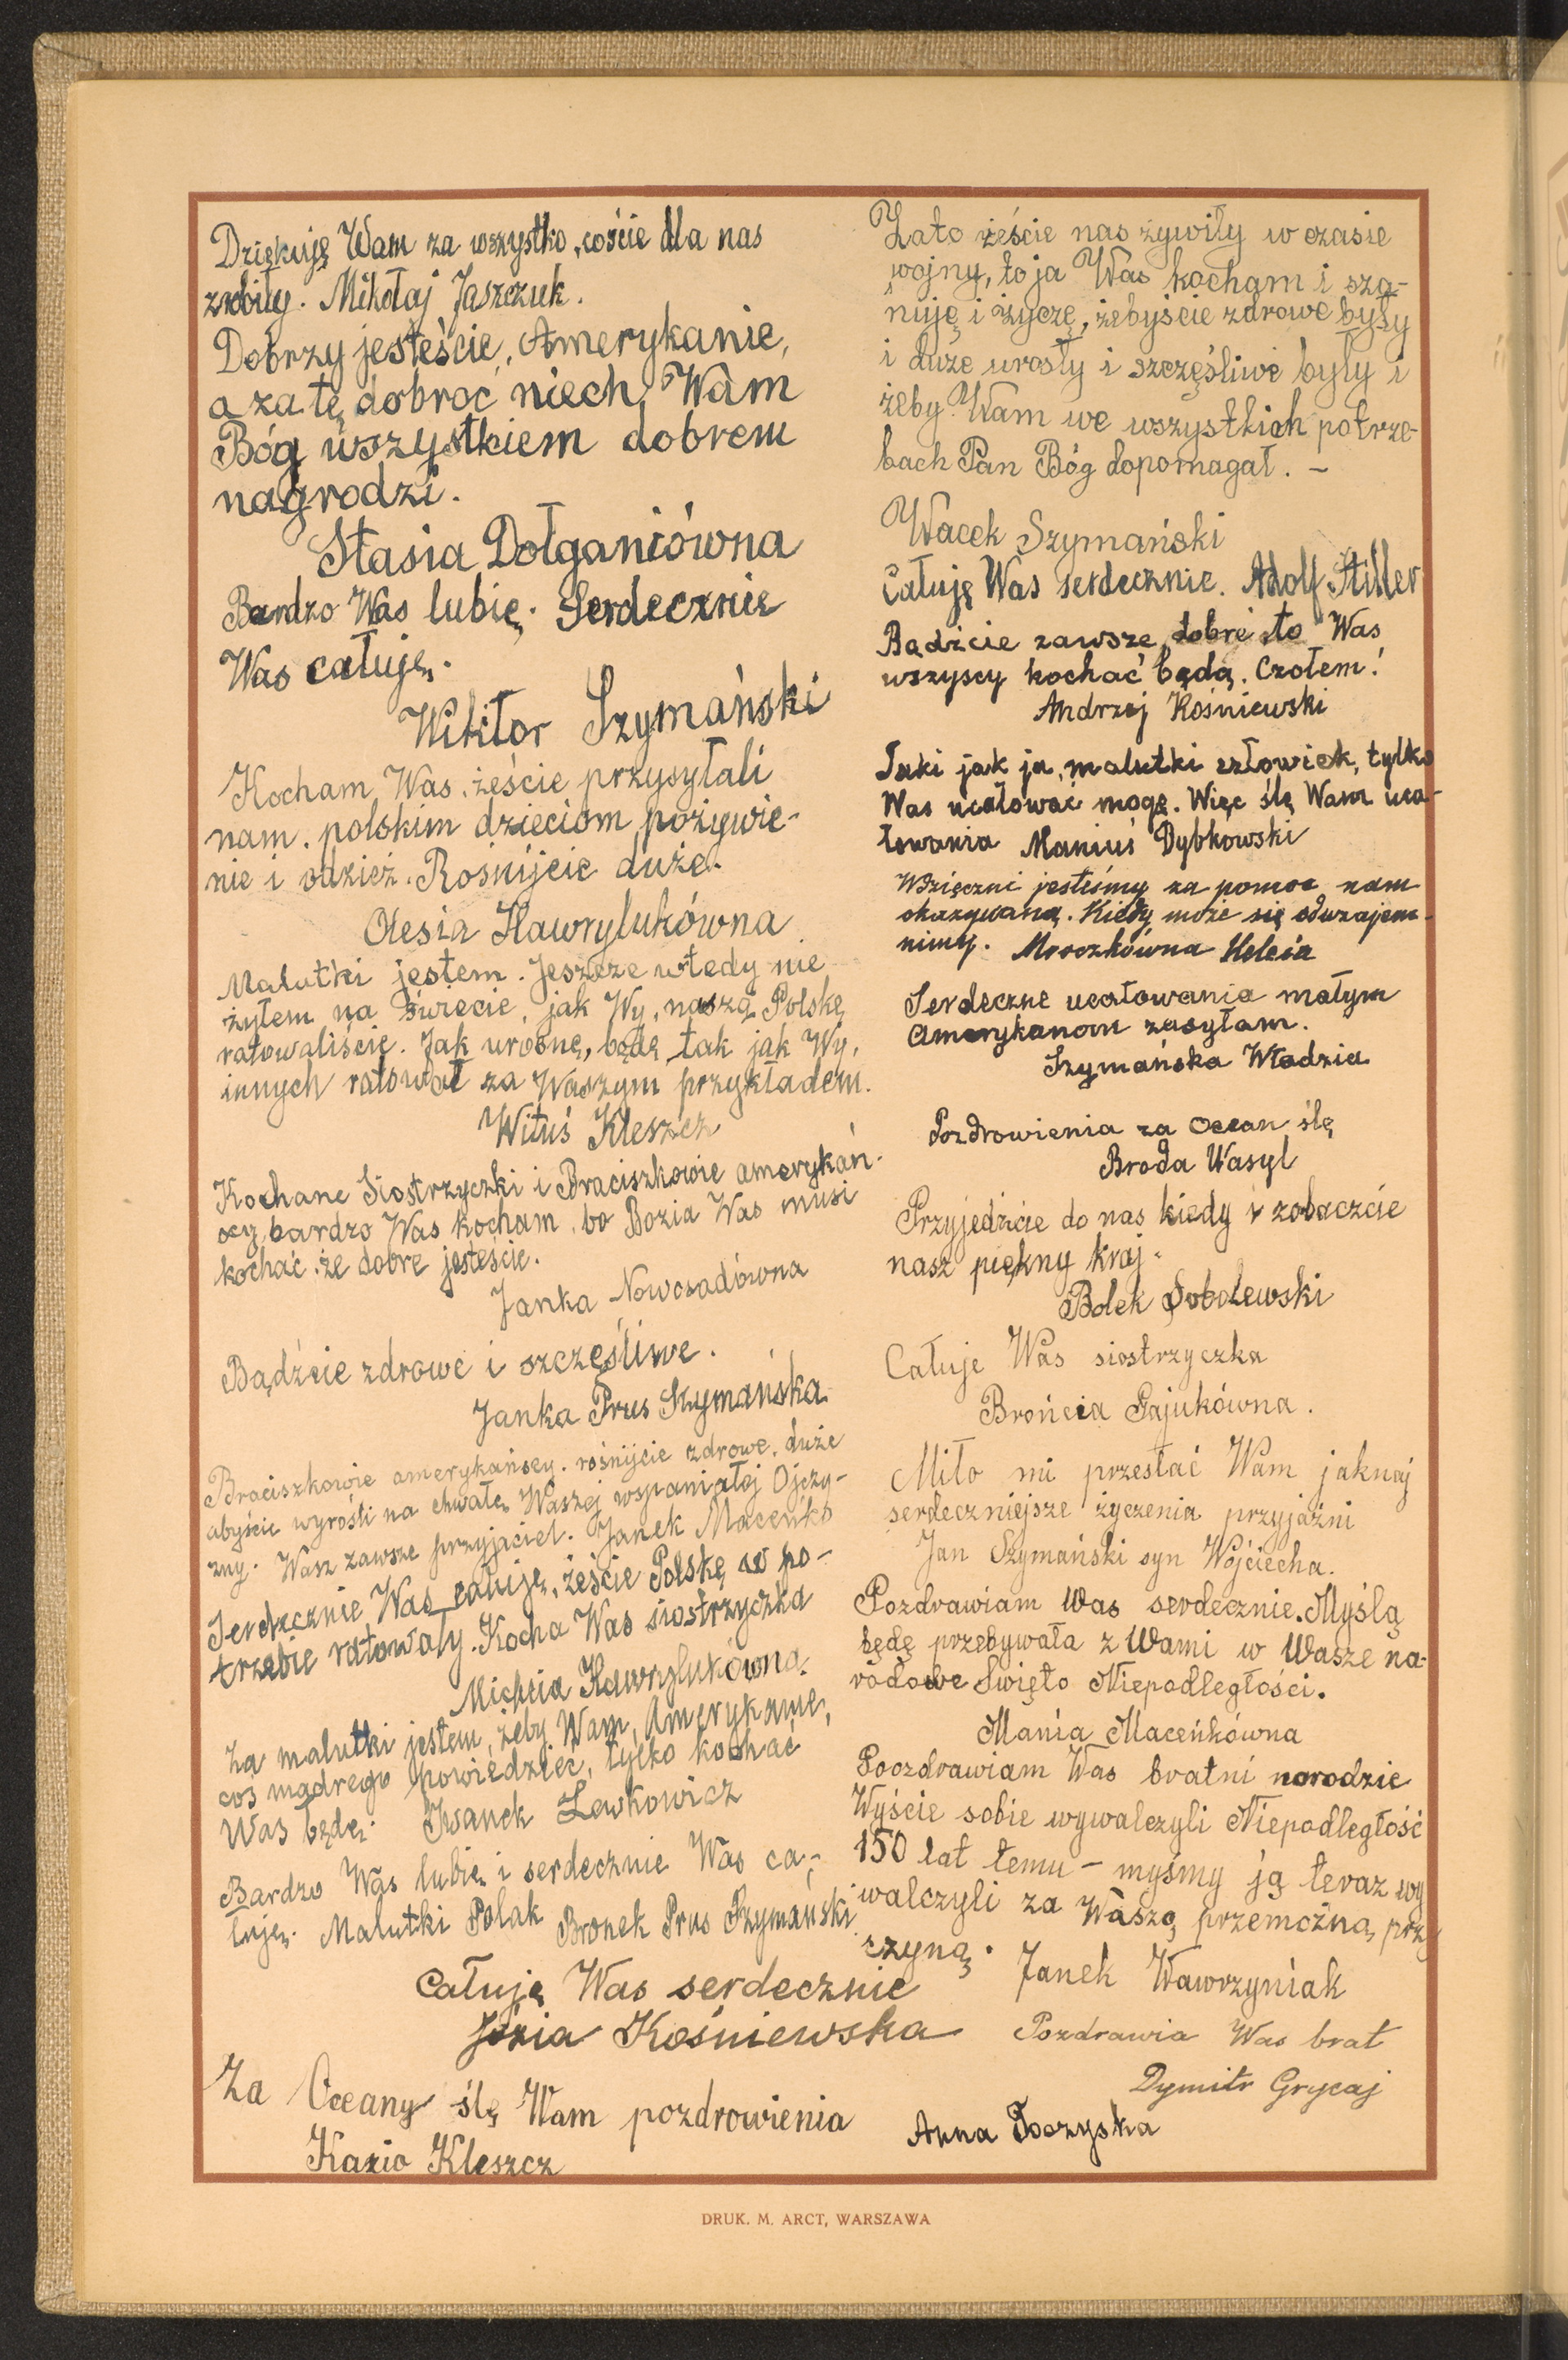 Dziękuję Wam za wszystko, coście dla nas
zrobiły. Mikołaj Jaszczuk.
Dobrzy jesteście, Amerykanie,
a za tę dobroć niech Wam
Bóg wszystkiem dobrem
nagrodzi.
Stasia Dołganiówna
Bardzo Was lubię. Serdecznie
Was całuję.
Wiktor Szymański
Kocham Was, żeście przysyłali
nam, polskim dzieciom pożywie-
nie i odzież. Rośnijcie duże.
Olesia Hawrylukówna
Malutki jestem. Jeszcze wtedy nie
żyłem na świecie, jak Wy, naszą Polskę
ratowaliście. Jak urosnę, będę tak jak Wy,
innych ratował za Waszym przykładem.
Wituś Kleszcz
Kochane Siostrzyczki i Braciszkowie amerykań-
scy bardzo Was kocham, bo Bozia Was musi
kochać, że dobre jesteście.
Janka Nowosadówna
Bądźcie zdrowe i szczęśliwe.
Janka Prus Szymańska
Braciszkowie amerykańscy, rośnijcie zdrowe, duże
abyście wyrośli na chwałę Waszej wspaniałej Ojczy-
zny. Wasz zawsze przyjaciel. Janek Maceńko
Serdecznie Was całuję, żeście Polskę w po-
trzebie ratowały. Kocha Was siostrzyczka
Michcia Hawrylukówna.
Za malutki jestem, żeby Wam, Amerykanie,
coś mądrego powiedzieć, tylko kochać
Was będę. Iwanek Lewkowicz
Bardzo Was lubię i serdecznie Was ca-
łuję. Malutki Polak Bronek Prus Szymański
Całuję Was serdecznie
Józia Kośniewska
Za Oceany ślę Wam pozdrowienia
Kazio Kleszcz
Zato żeście nas żywiły w czasie
wojny, to ja Was kocham i sza-
nuję i życzę, żebyście zdrowe były
i duże urosły i szczęśliwe były i
żeby Wam we wszystkich potrze-
bach Pan Bóg dopomagał. –
Wacek Szymański
Całuję Was serdecznie. Adolf Stiller
Bądźcie zawsze dobre to Was
wszyscy kochać będą. Czołem!
Andrzej Kośniewski
Taki jak ja, malutki człowiek, tylko
Was ucałować mogę. Więc ślę Wam uca-
łowania Maniuś Dybkowski
Wdzięczni jesteśmy za pomoc nam
okazywaną. Kiedy może się odwzajem-
nimy. Mroczkówna Helcia
Serdeczne ucałowania małym
Amerykanom zasyłam.
Szymańska Władzia
Pozdrowienia za Ocean ślę
Broda Wasyl
Przyjedźcie do nas kiedy i zobaczcie
nasz piękny kraj.
Bolek Sobolewski
Całuje Was siostrzyczka
Brońcia Gajukówna.
Miło mi przesłać Wam jaknaj
serdeczniejsze życzenia przyjaźni
Jan Szymański syn Wojciecha.
Pozdrawiam Was serdecznie. Myślą
będę przebywała z Wami w Wasze na-
rodowe Święto Niepodległości.
Mania Maceńkówna
Poozdrawiam Was bratni narodzie
Wyście sobie wywalczyli Niepodległość
150 lat temu – myśmy ją teraz wy
walczyli za Waszą przemożną przy
czyną. Janek Wawrzyniak
Pozdrawia Was brat
Dymitr Grycaj
Anna Toczyska
DRUK. M. ARCT, WARSZAWA